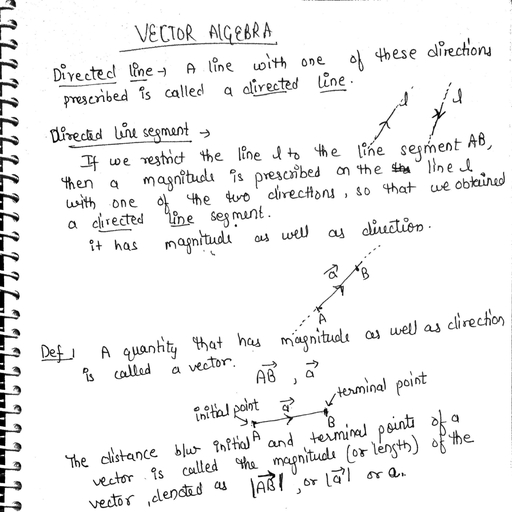 VECTOR ALGEBRA
Directed line → A line with one of these directions
prescribed is called a directed line.
l l
Directed Line segment →
If we restrict the line l to the line segment AB,
then a magnitude is prescribed on the line l
with one of the two directions, so that we obtained
a directed line segment.
it has magnitude as well as direction.
a⃗
B
A
Def 1 A quantity that has magnitude as well as direction
is called a vector. A⃗B⃗, a⃗
initial point a⃗ terminal point
A B
The distance b/w initial and terminal points of a
vector is called the magnitude (or length) of the
vector, denoted as |A⃗B⃗|, or |a⃗| or a.